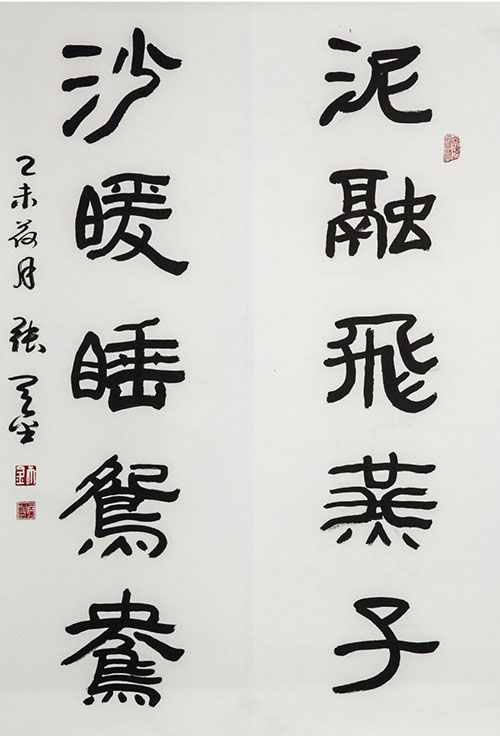 泥融飛燕子
沙暖睡鴛鴦
乙未荷月 張